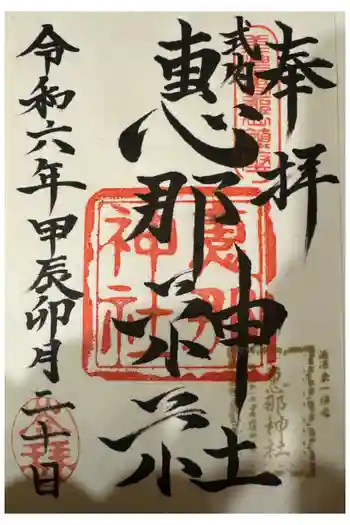 奉拝
式内
恵那神社
令和六年甲辰卯月二十日
恵那
神社
恵那神社
参拝